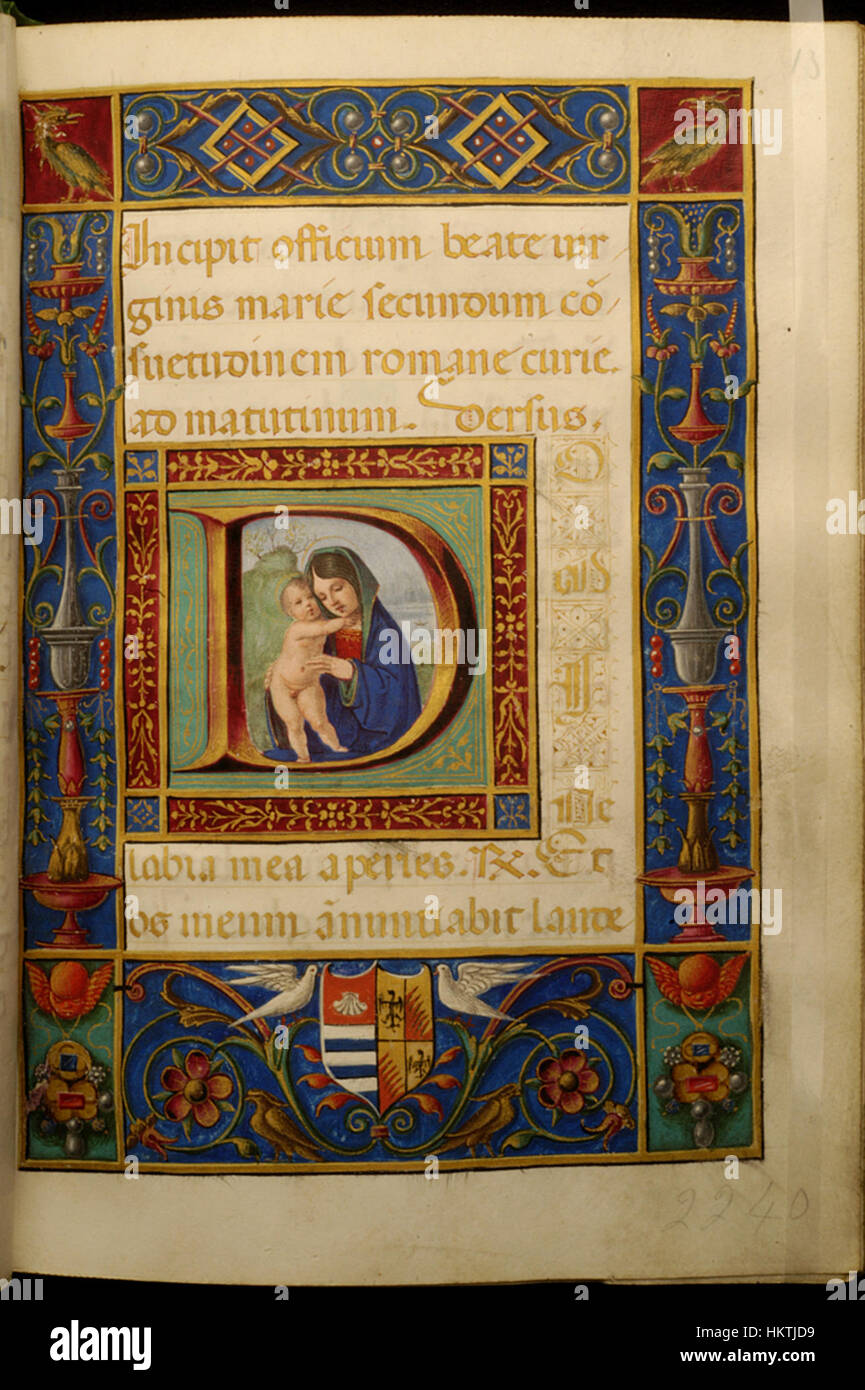 13
Incipit officium beate uir
ginis marie secundum cō
suetudinem romane curie.
ad matutinum. Versus.
D
O
ad
I
ne
labia mea aperies. R. Et
os meum ānuntiabit laude
2240
alamy
Image ID: HKTJD9
www.alamy.com